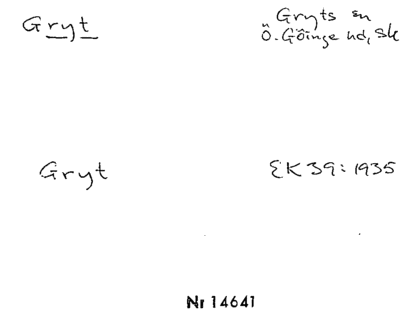 Gryt
Gryts sn
Ö. Göinge hd, Sk
Gryt
EK 39: 1935
Nr 14641